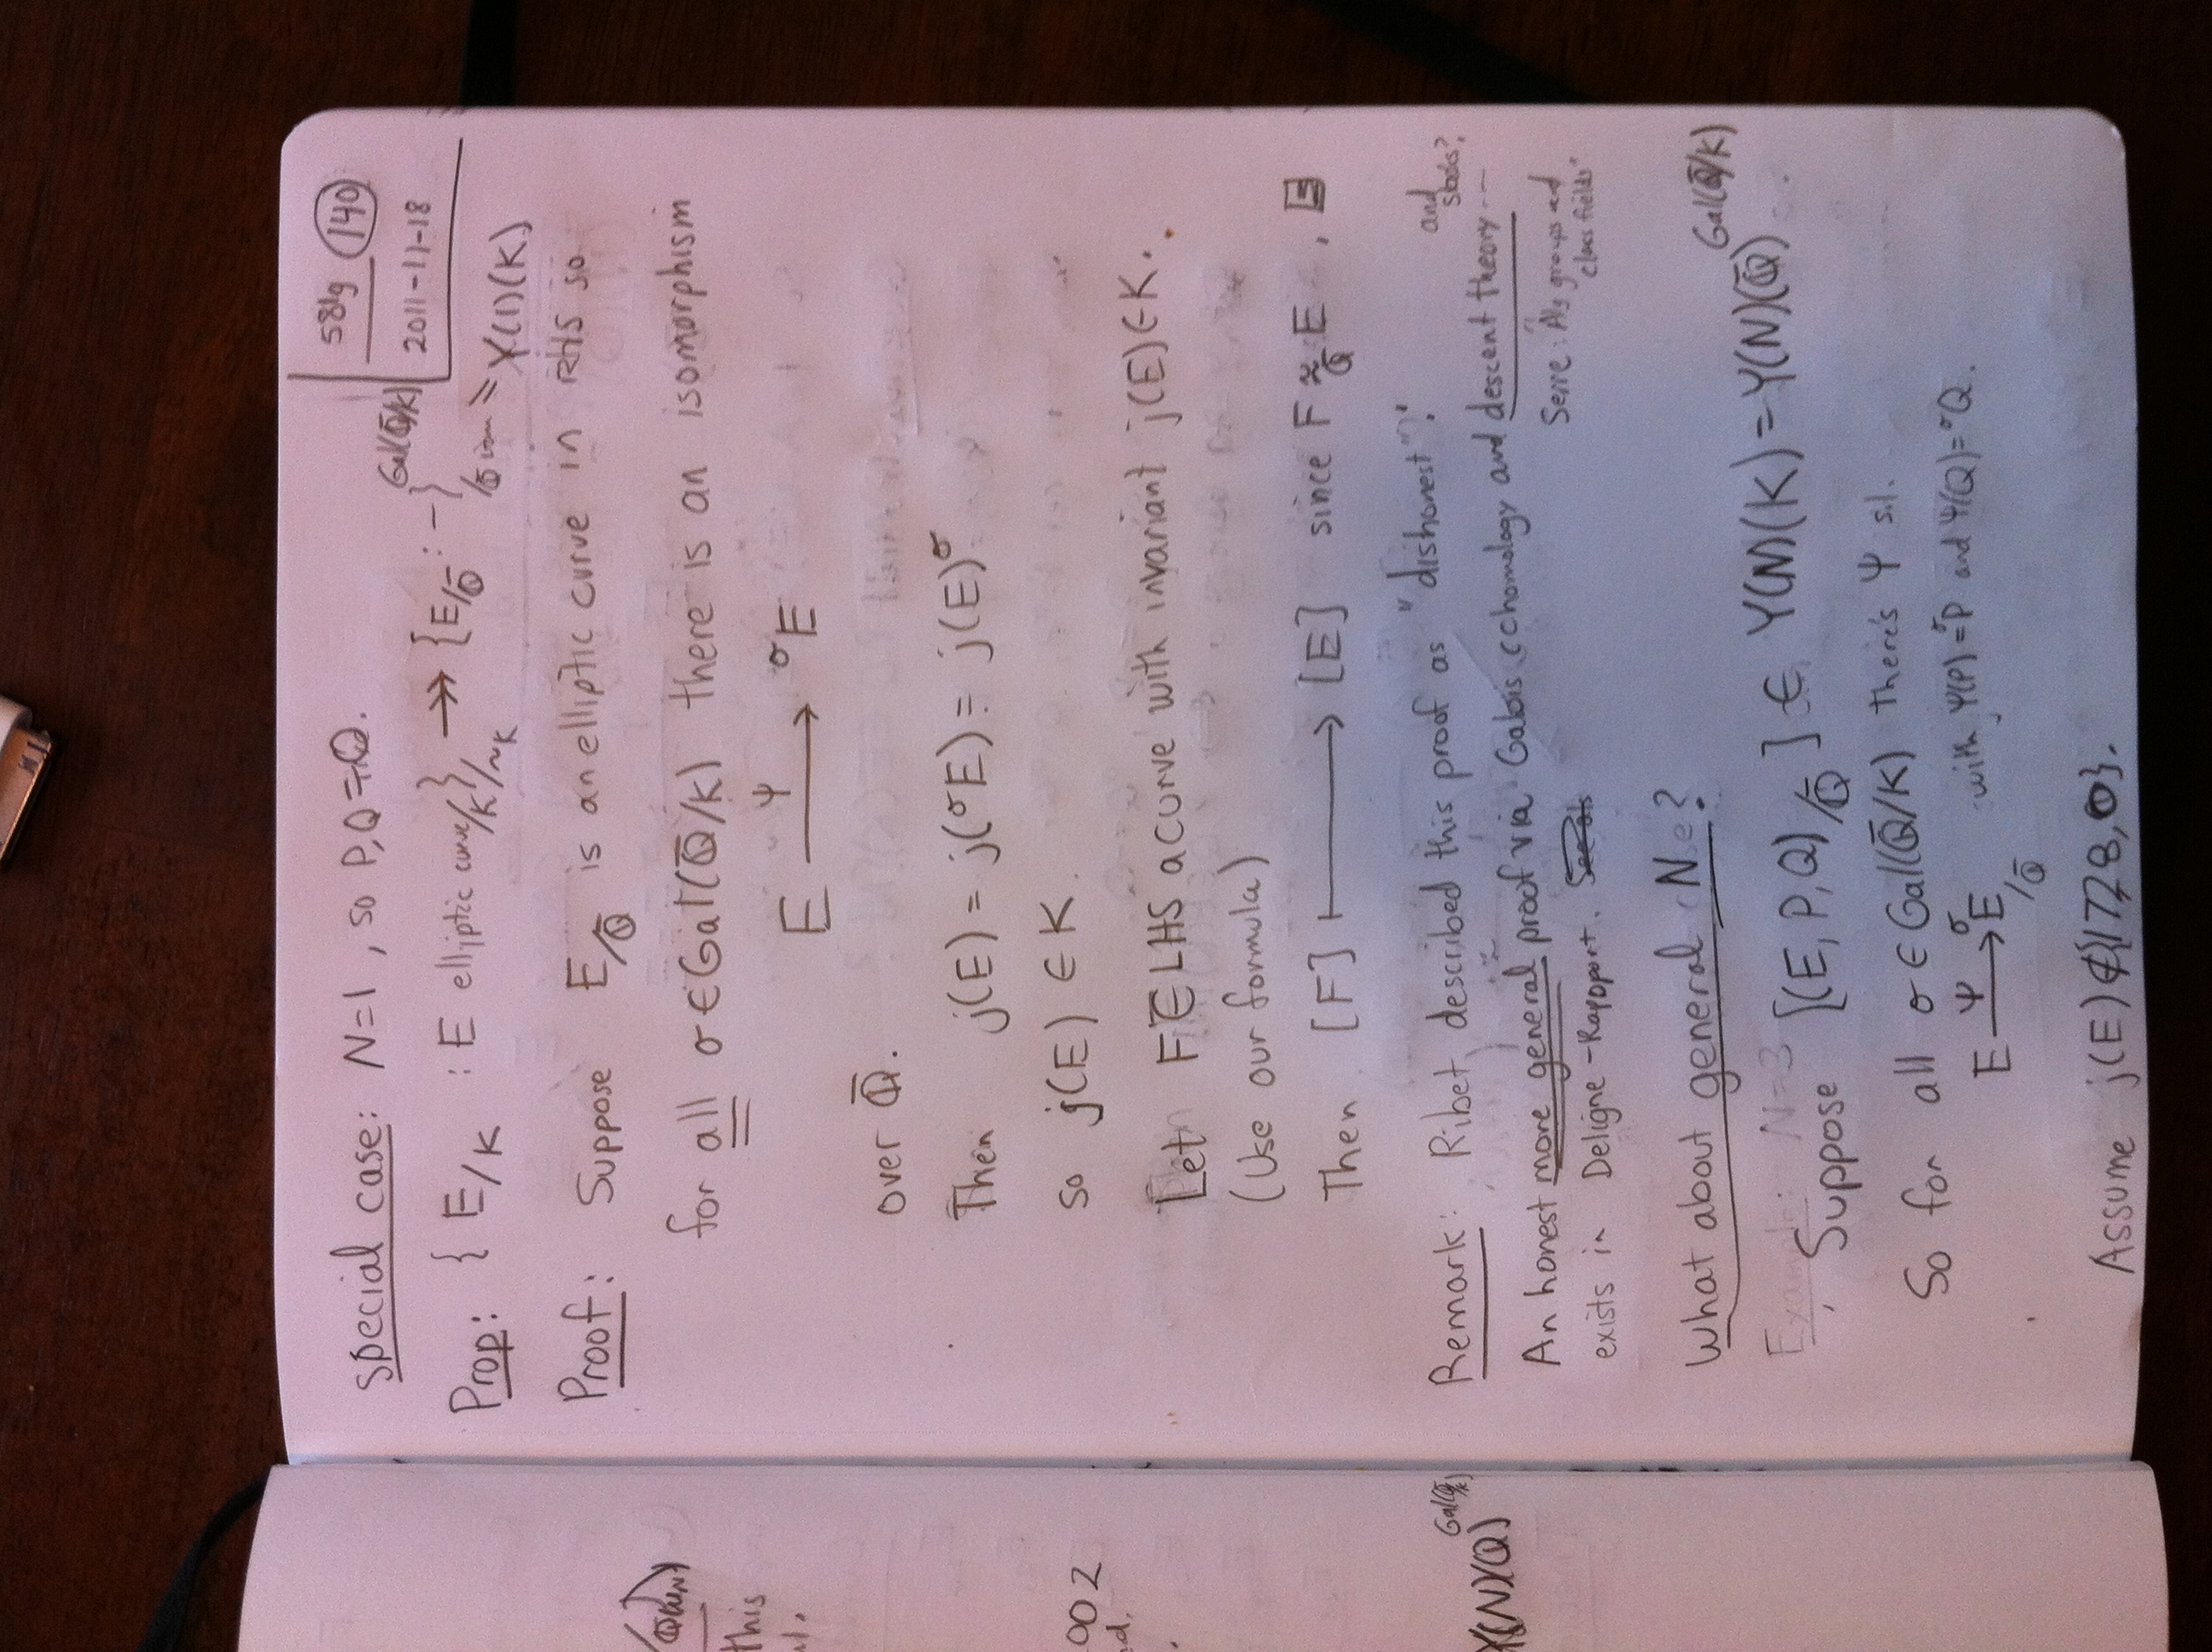 581g (140)
2011-11-18
Special case: N=1, so P,Q=0.
Prop: { E/K : E elliptic curve/K }/~K ↠ {E/Q̄ : -}/Q̄ isom ^Gal(Q̄/K) = Y(1)(K)
Proof: Suppose E/Q̄ is an elliptic curve in RHS so
for all σ∈Gal(Q̄/K) there is an isomorphism
E —ψ→ ᵠE
over Q̄.
Then j(E) = j(ᵠE) = j(E)^σ
so j(E) ∈ K.
Let F∈LHS a curve with invariant j(E)∈K.
(Use our formula)
Then [F] ⟼ [E] since F ≈_Q̄ E, □
Remark: Ribet described this proof as "dishonest"!
An honest more general proof via Galois cohomology and descent theory -- and stacks?,
exists in Deligne-Rapoport.
Serre: "Alg groups and
class fields"
What about general N?
Example: N=3
Suppose [(E,P,Q)/Q̄] ∈ Y(N)(K) = Y(N)(Q̄)^Gal(Q̄/K).
So for all σ∈Gal(Q̄/K) there's ψ s.t.
E —ψ→ ᵠE /Q̄ with ψ(P)=ᵠP and ψ(Q)=ᵠQ.
Assume j(E)∉{1728,0}.
this
002
X(N)(Q̄)^Gal(Q̄/K)